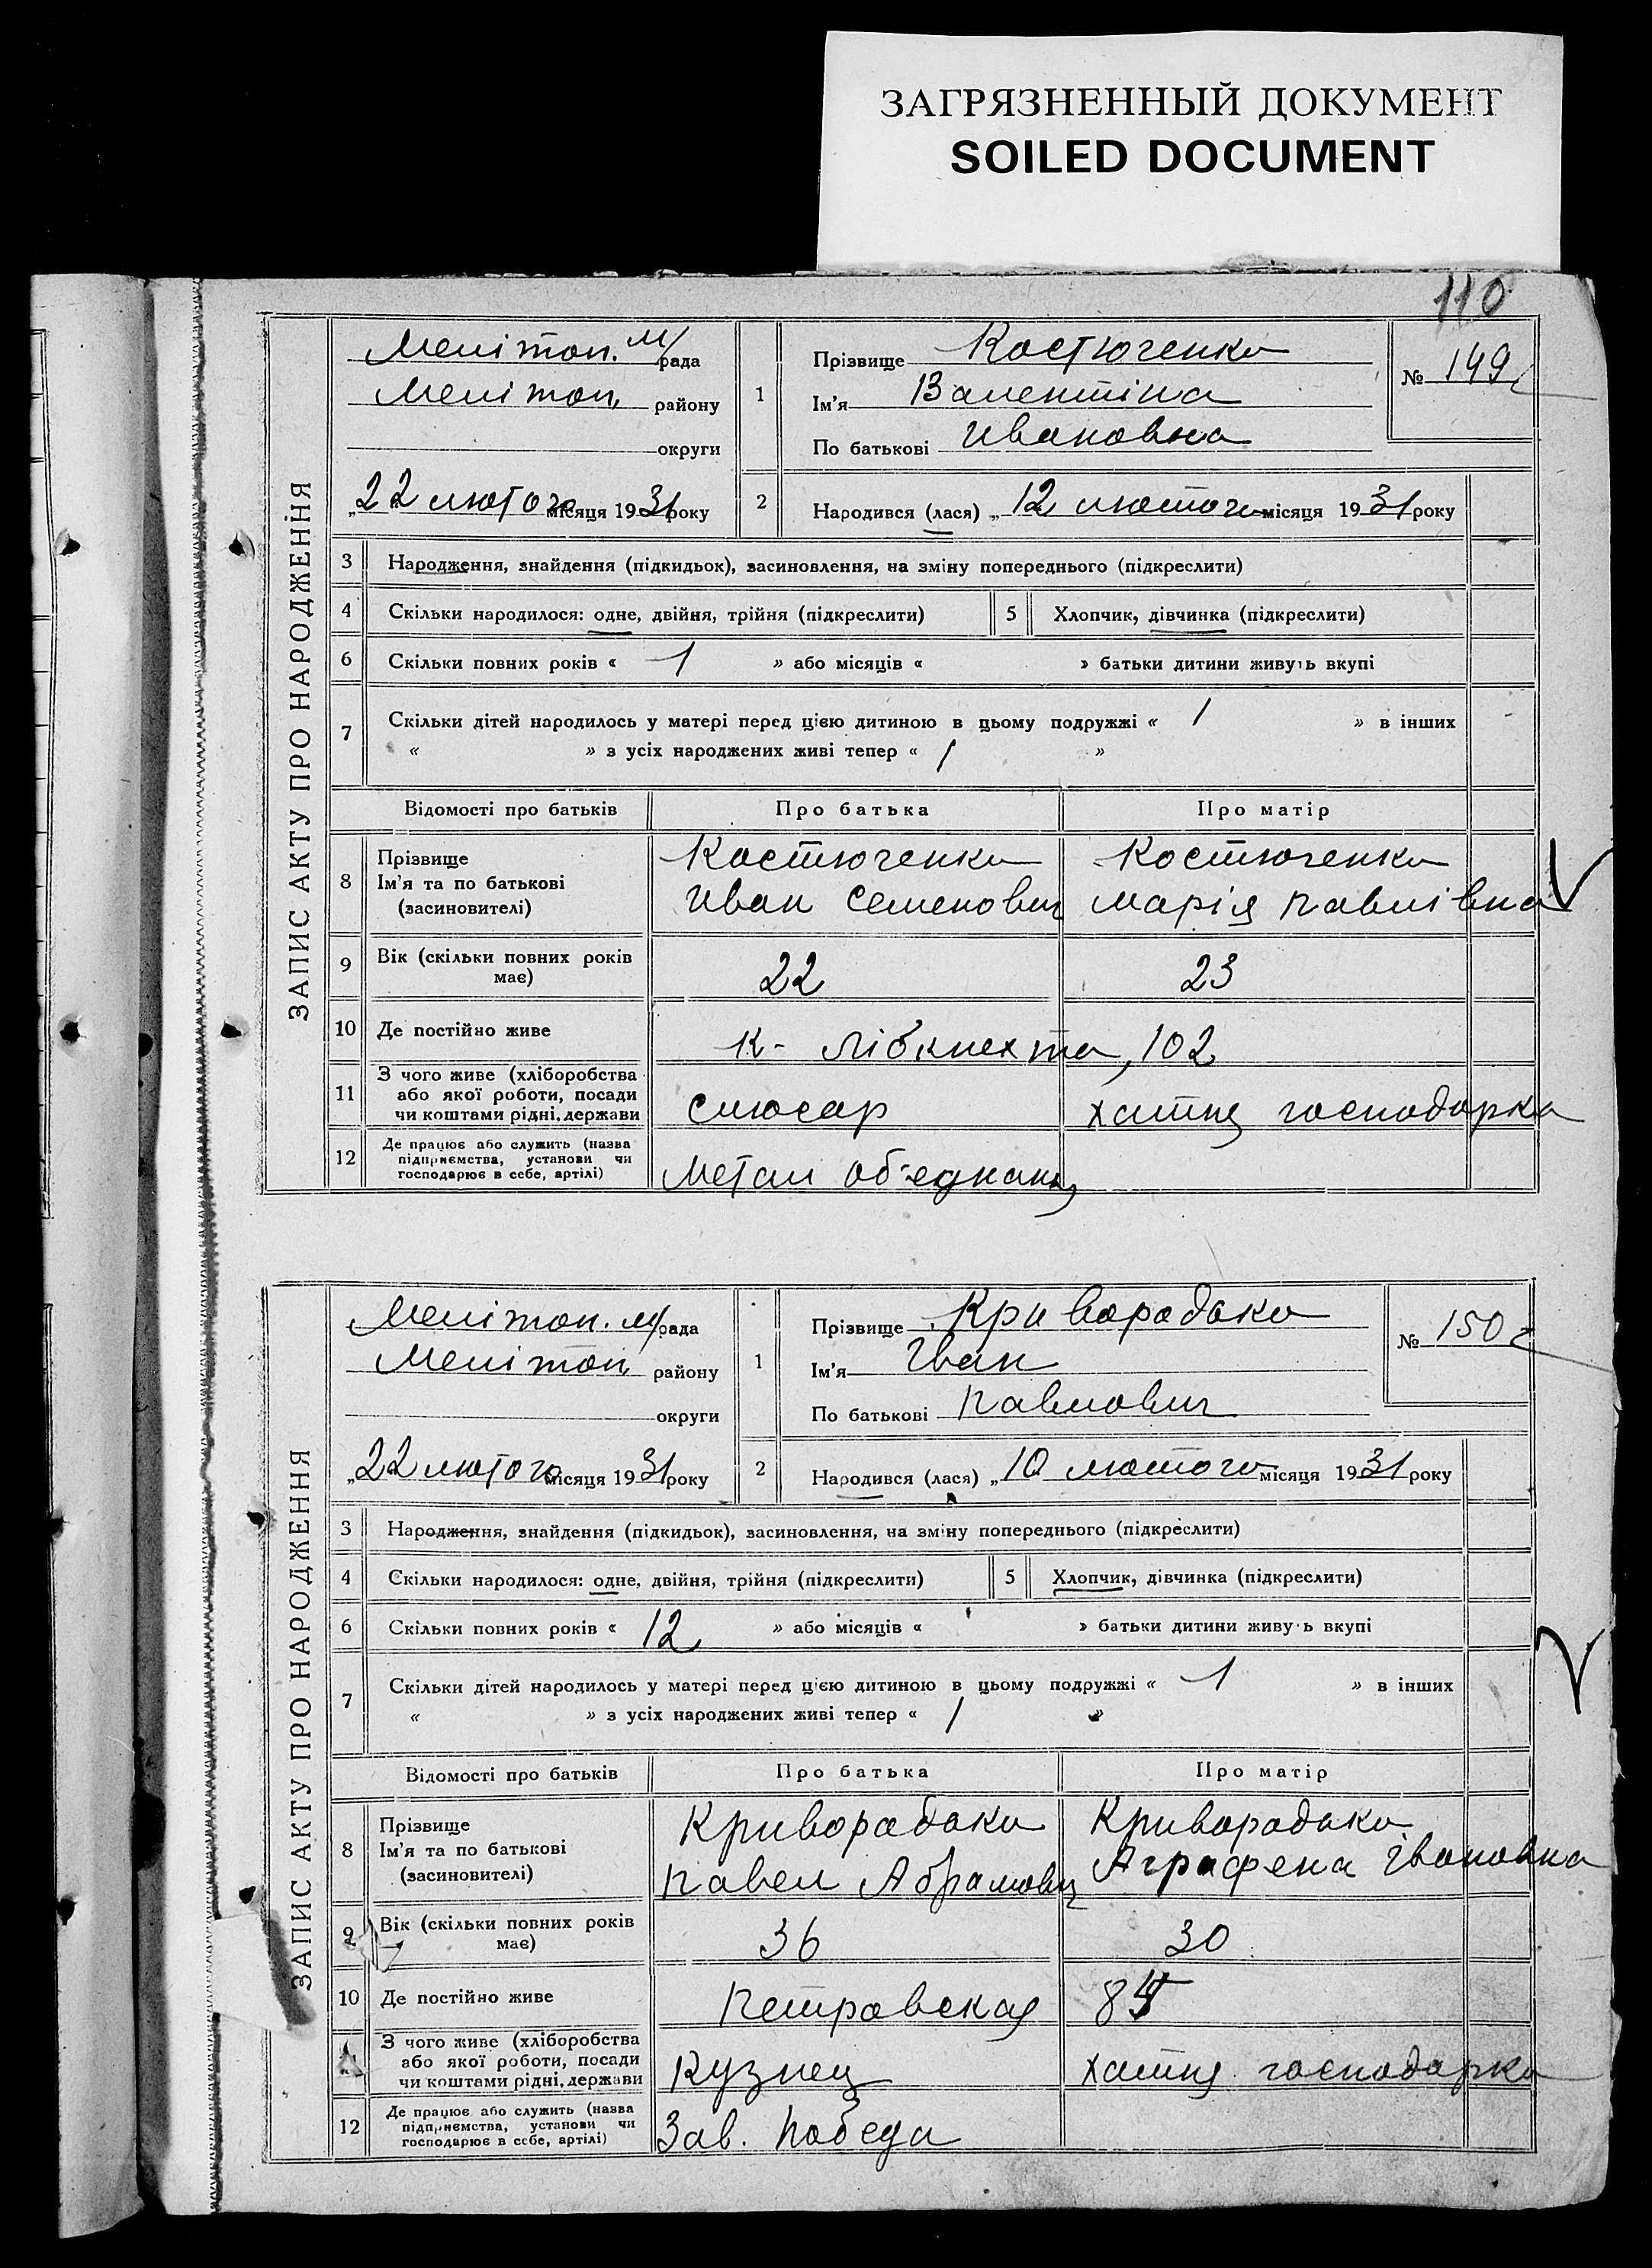 ЗАГРЯЗНЕННЫЙ ДОКУМЕНТ
SOILED DOCUMENT
110
ЗАПИС АКТУ ПРО НАРОДЖЕННЯ
Мелітоп. м/рада
Мелітоп. району
округи
„22 лютого місяця 1931 року
1
Прізвище Костюченко
Ім'я Валентіна
По батькові Ивановна
№ 149
2
Народився (лася) „12 лютого місяця 1931 року
3 Народження, знайдення (підкидьок), засиновлення, на зміну попереднього (підкреслити)
4 Скільки народилося: одне, двійня, трійня (підкреслити) 5 Хлопчик, дівчинка (підкреслити)
6 Скільки повних років « 1 » або місяців « » батьки дитини живуть вкупі
7 Скільки дітей народилось у матері перед цією дитиною в цьому подружжі « 1 » в інших
« » з усіх народжених живі тепер « 1 »
Відомості про батьків Про батька Про матір
8 Прізвище Костюченко Костюченко
Ім'я та по батькові Иван Семенович Марія Павлівна
(засиновителі)
9 Вік (скільки повних років має) 22 23
10 Де постійно живе К- Лібкнехта, 102
11 З чого живе (хліборобства
або якої роботи, посади
чи коштами рідні, держави слюсар хатня господарка
12 Де працює або служить (назва
підприємства, установи чи
господарює в себе, артілі) Метал об'єднання
ЗАПИС АКТУ ПРО НАРОДЖЕННЯ
Мелітоп. м/рада
Мелітоп. району
округи
„22 лютого місяця 1931 року
1
Прізвище Криворадько
Ім'я Іван
По батькові Павлович
№ 150
2
Народився (лася) „10 лютого місяця 1931 року
3 Народження, знайдення (підкидьок), засиновлення, на зміну попереднього (підкреслити)
4 Скільки народилося: одне, двійня, трійня (підкреслити) 5 Хлопчик, дівчинка (підкреслити)
6 Скільки повних років « 12 » або місяців « » батьки дитини живуть вкупі
7 Скільки дітей народилось у матері перед цією дитиною в цьому подружжі « 1 » в інших
« » з усіх народжених живі тепер « 1 »
Відомості про батьків Про батька Про матір
8 Прізвище Криворадько Криворадько
Ім'я та по батькові Павел Абрамович Аграфена Івановна
(засиновителі)
9 Вік (скільки повних років має) 36 30
10 Де постійно живе Петровская
З чого живе (хліборобства
або якої роботи, посади
чи коштами рідні, держави Кузнец хатня господарка
12 Де працює або служить (назва
підприємства, установи чи
господарює в себе, артілі) Зав. Победа